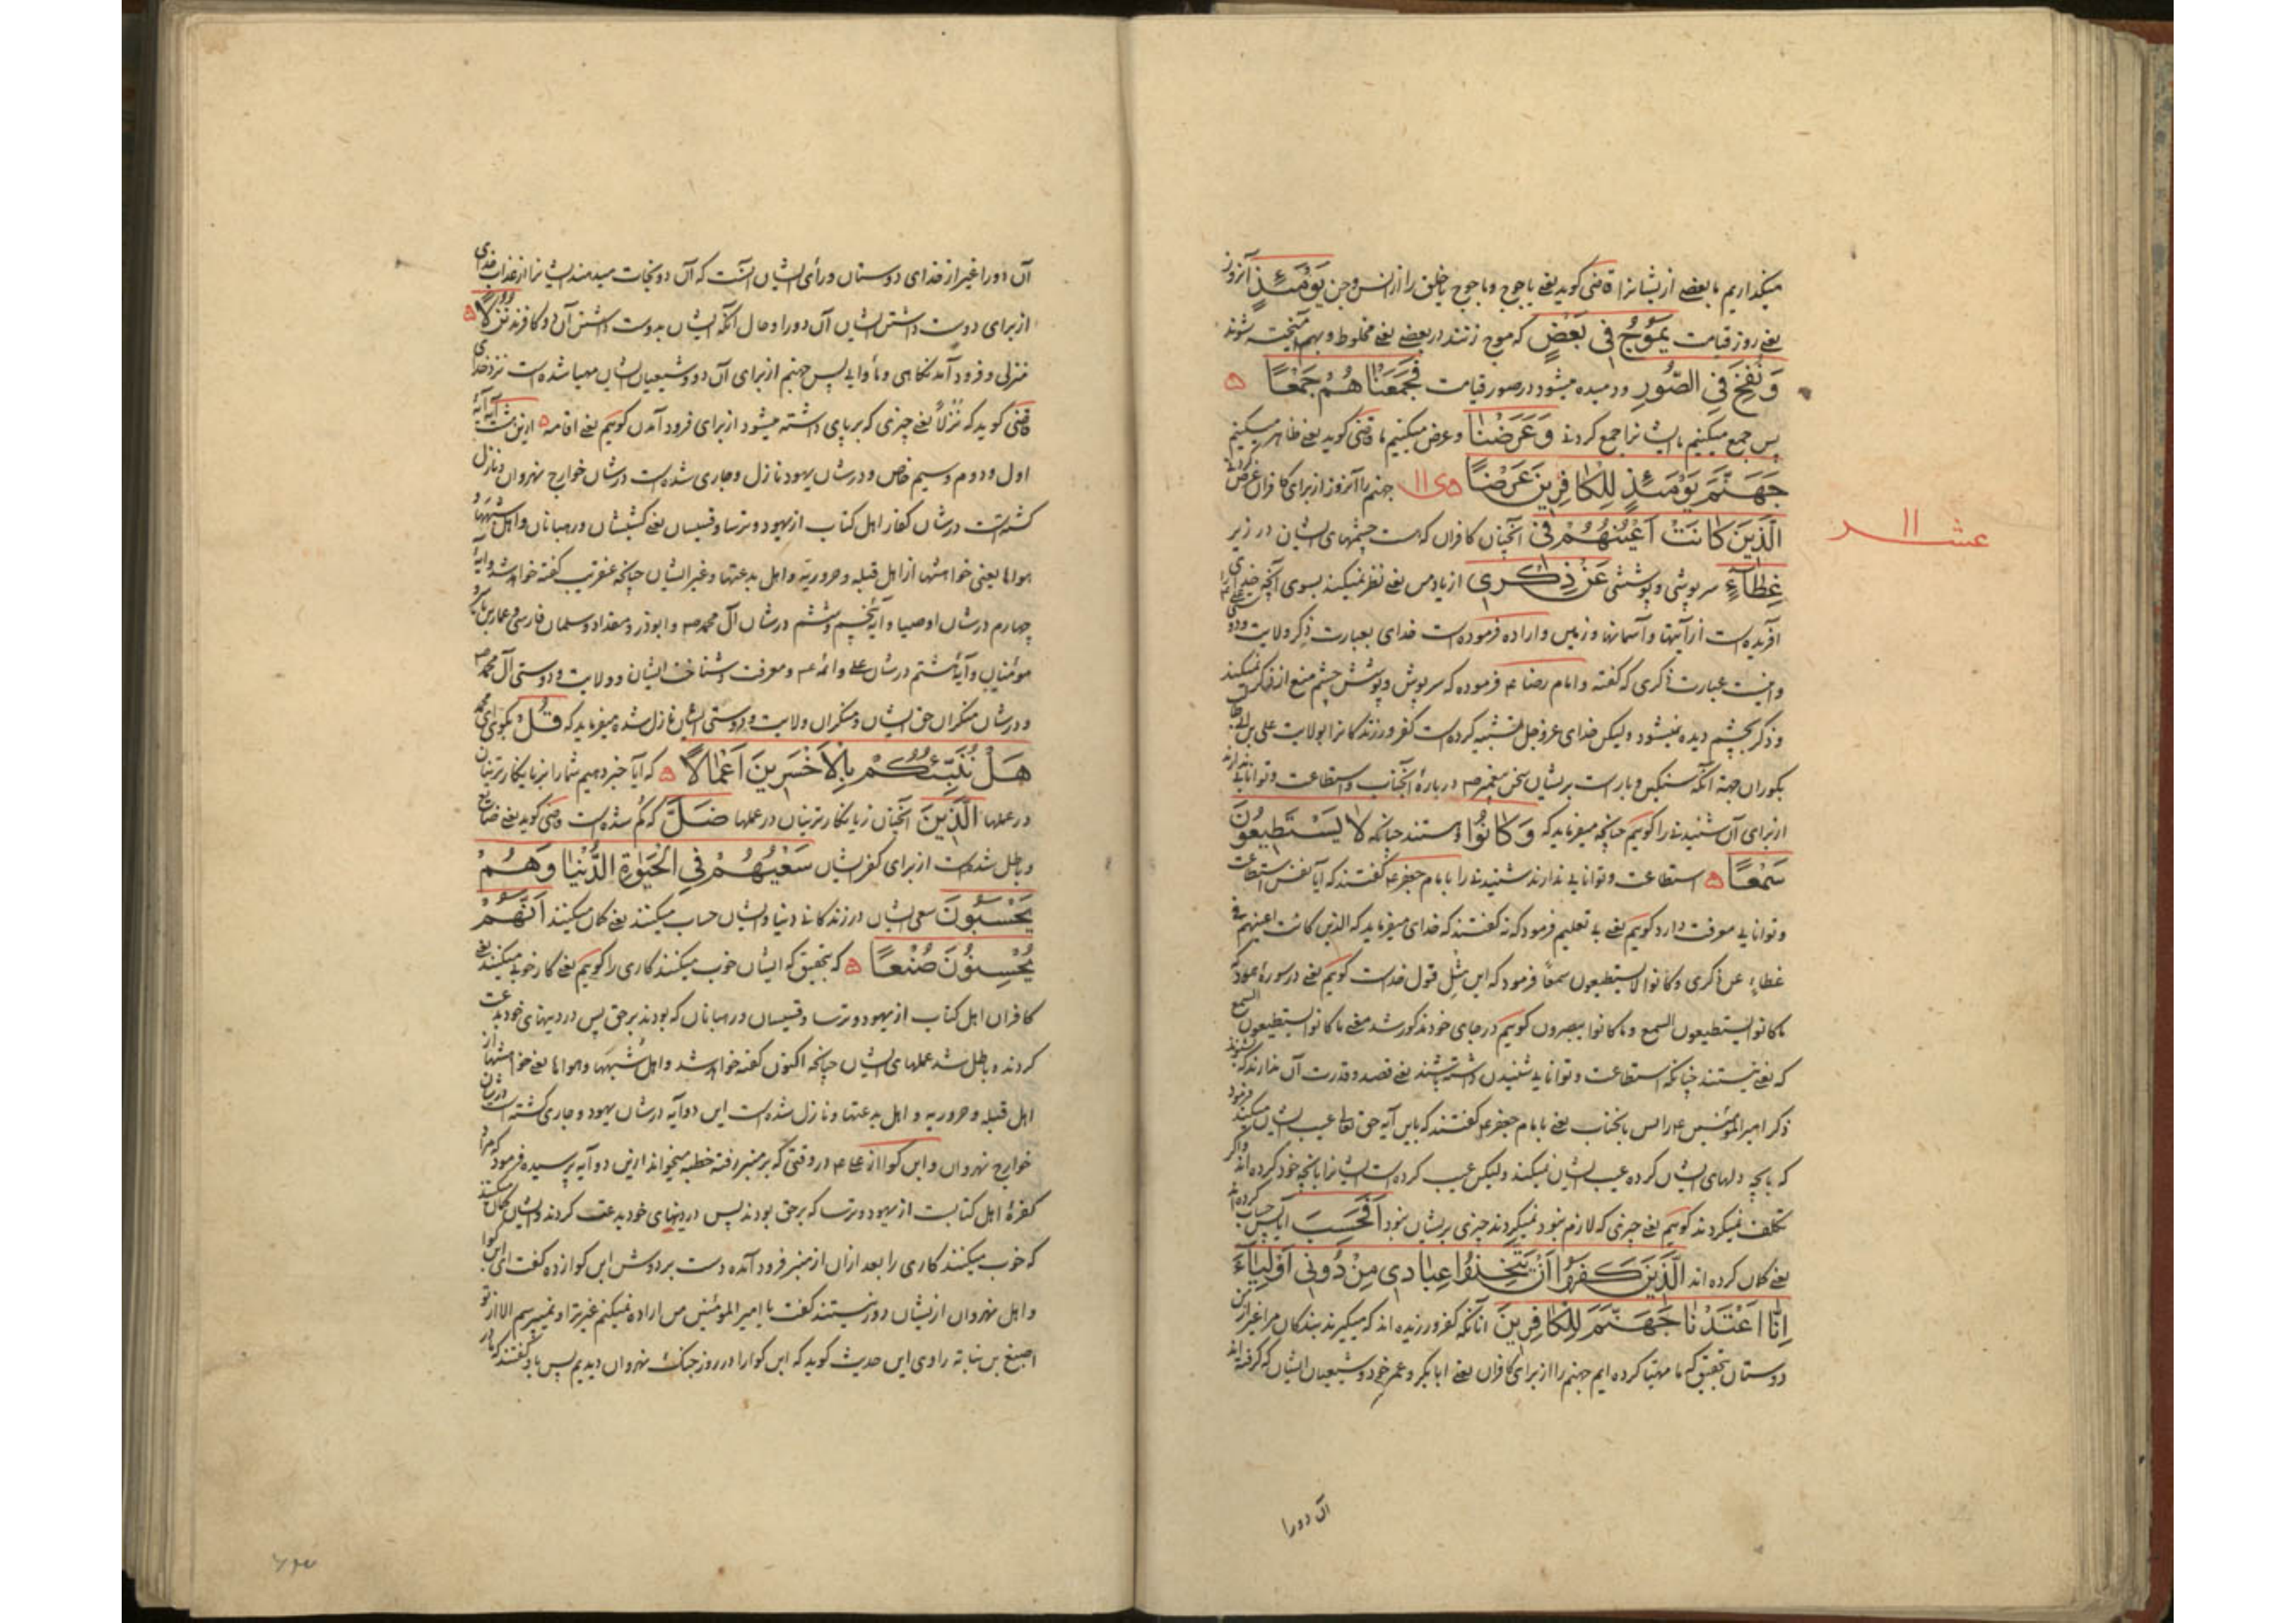 میگذاریم ما بعضے ازیشانرا قاضی گوید یعنے یاجوج وماجوج یا خلق را از انس وجن يَوْمَئِذٍ آنروز
یعنے روز قیامت يَمُوجُ فِي بَعْضٍ که موج زنند در بعضے یعنے مخلوط و بهم آمیخته شوند
وَنُفِخَ فِي الصُّورِ ودمیده میشود در صور قیامت فَجَمَعْنَاهُمْ جَمْعًا ه
پس جمع میکنیم ما ایشانرا جمع کردنے وَعَرَضْنَا وعرض میکنیم ما قاضی گوید یعنے ظاهر میکنیم
جَهَنَّمَ يَوْمَئِذٍ لِلْكَافِرِينَ عَرْضًا ه ی ١١ جهنم را آنروز از برای کافران عرض کردنے
عشر ١١
الَّذِينَ كَانَتْ أَعْيُنُهُمْ فِي آنچنان کافران که هست چشمهای ایشان در زیر
غِطَاءٍ سرپوشی وپوششی عَنْ ذِكْرِي از یاد من یعنے نظر نمیکنند بسوی آنچه خدای
آفریده است از آیتها وآسمانها وزمین واراده فرموده است خدای بعبارت ذکر ولایت ودوستی علی را
واینست عبارت ذکری که گفته وامام رضا ع فرموده که سرپوش وپوشش چشم منع از ذکر نمیکند
وذکر بچشم دیده نمیشود ولیکن خدای عزوجل تشبیه کرده است کفر ورزندکانرا بولایت علی بن ابی طالب
بکوران جهة آنکه سنگین وبار است بریشان سخن پیغمبر ص دربارۀ آنجناب واستطاعت وتوانایی ندارند
از برای آن شنیدنے را گویم چنانچه میفرماید که وَكَانُوا وهستند چنانکه لَا يَسْتَطِيعُونَ
سَمْعًا ه استطاعت وتوانایی ندارند شنیدنے را بامام جعفر ع گفتند که آیا نفس استطاعت
وتوانایی معرفت دارد گویم یعنے بے تعلیم فرمود که نه گفتند که خدای میفرماید که الذین کانت اعینهم فی
غطاءٍ عن ذکری وکانوا لا یستطیعون سمعًا فرمود که این مثل قول خداست گویم یعنے در سورۀ هود
ما کانوا یستطیعون السمع وما کانوا یبصرون گویم در جای خود مذکور شد معنے ما کانوا یستطیعون السمع
که یعنے نیستند چنانکه استطاعت وتوانایی شنیدن داشته باشند یعنے قصد وقدرت آن ندارند که بشنوند
ذکر امیرالمؤمنین ع را پس بانجناب یعنے بامام جعفر ع گفتند که باین آیه حق تعالی عیب ایشان میکند فرمود
که بآنچه دلهای ایشان کرده عیب ایشان نمیکند ولیکن عیب کرده است ایشانرا بآنچه خود کرده اند واگر
تکلف نمیکردند گویم یعنے چیزی که لازم نبود نمیکردند چیزی بریشان نبود أَفَحَسِبَ آیا پس حساب کرده اند
یعنے گمان کرده اند الَّذِينَ كَفَرُوا أَنْ يَتَّخِذُوا عِبَادِي مِنْ دُونِي أَوْلِيَاءَ
إِنَّا أَعْتَدْنَا جَهَنَّمَ لِلْكَافِرِينَ آنانکه کفر ورزیده اند که میگیرند بندگان مرا غیر از من
دوستان بتحقیق که ما مهیّا کرده ایم جهنم را از برای کافران یعنے ابابکر وعمر خود وشیعیان ایشان که گرفته اند
آن دورا
آن دورا غیر از خدای دوستان ورأی ایشان آنست که آن دو نجات میدهند ایشانرا از عذاب خدای
از برای دوست داشتن ایشان آن دورا وحال آنکه ایشان بدوست داشتن آن دو کافرند نُزُلًا ه
منزلی وفرود آمدنگاهی ومأوایی پس جهنم از برای آن دو وشیعیان ایشان مهیا شده است نزد خدای
قاضی گوید که نُزُلًا یعنے چیزی که برپای داشته میشود از برای فرود آمدن گویم یعنے اقامه ه ازین هشت آیه آیۀ
اول ودوم وسیم خاص ودرشان یهود نازل وجاری شده است درشان خوارج نهروان ونازل
گشته است درشان کفار اهل کتاب از یهود وترسا وقسیسان یعنے کشیشان ورهبانان واهل شبهها و
هواها یعنی خواهشها از اهل قبله وحروریّه واهل بدعتها وغیر ایشان چنانچه عنقریب گفته خواهد شد وآیۀ
چهارم درشان اوصیا وآیۀ پنجم وششم درشان آل محمد ص وابوذر ومقداد وسلمان فارسی وعمار بن یاسر و
مؤمنان وآیۀ هشتم درشان علے وائمه ع ومعرفت وشناخت ایشان وولایت ودوستی آل محمد ص
ودرشان منکران حق ایشان ومنکران ولایت ودوستی ایشان نازل شده میفرماید که قُلْ بگوی ای محمد
هَلْ نُنَبِّئُكُمْ بِالْأَخْسَرِينَ أَعْمَالًا ه که آیا خبر دهیم شمارا بزیانکارترینان
در عملها الَّذِينَ آنچنان زیانکارترینان در عملها ضَلَّ که گم شده است قاضی گوید یعنے ضایع
وباطل شده است از برای کفر ایشان سَعْيُهُمْ فِي الْحَيَوةِ الدُّنْيَا وَهُمْ
يَحْسَبُونَ سعی ایشان در زندکانے دنیا وایشان حساب میکنند یعنے گمان میکنند أَنَّهُمْ
يُحْسِنُونَ صُنْعًا ه که بتحقیق که ایشان خوب میکنند کاری را گویم یعنے کار خوبی میکنند یعنے
کافران اهل کتاب از یهود وترسا وقسیسان ورهبانان که بودند برحق پس در دینهای خود بدعت
کردند وباطل شد عملهای ایشان چنانچه اکنون گفته خواهد شد واهل شبهها وهواها یعنے خواهشها از
اهل قبله وحروریه واهل بدعتها ونازل شده است این دو آیه درشان یهود وجاری گشته است درشان
خوارج نهروان وابن کوا از علے ع در وقتی که بر منبر رفته خطبه میخواند ازین دو آیه پرسیده فرمود که مراد
کفرۀ اهل کتابست از یهود وترسا که برحق بودند پس در دینهای خود بدعت کردند وایشان گمان میکنند
که خوب میکنند کاری را بعد ازان از منبر فرود آمده دست بردوش ابن کوا زده گفت ای ابن کوا
واهل نهروان ازیشان دور نیستند گفت یا امیر المؤمنین من اراده نمیکنم غیر ترا ونمیپرسم الا از تو
اصبغ بن نباته راوی این حدیث گوید که ابن کوا را در روز جنگ نهروان دیدیم پس باو گفتند که مادر